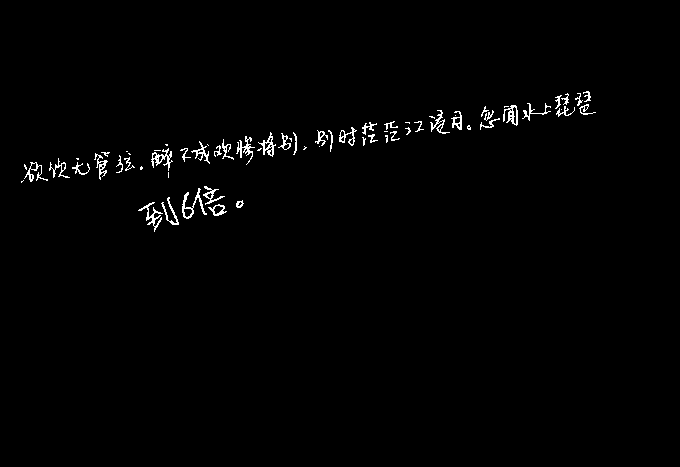 欲饮无管弦。醉不成欢惨将别，别时茫茫江浸月。忽闻水上琵琶
到6倍。